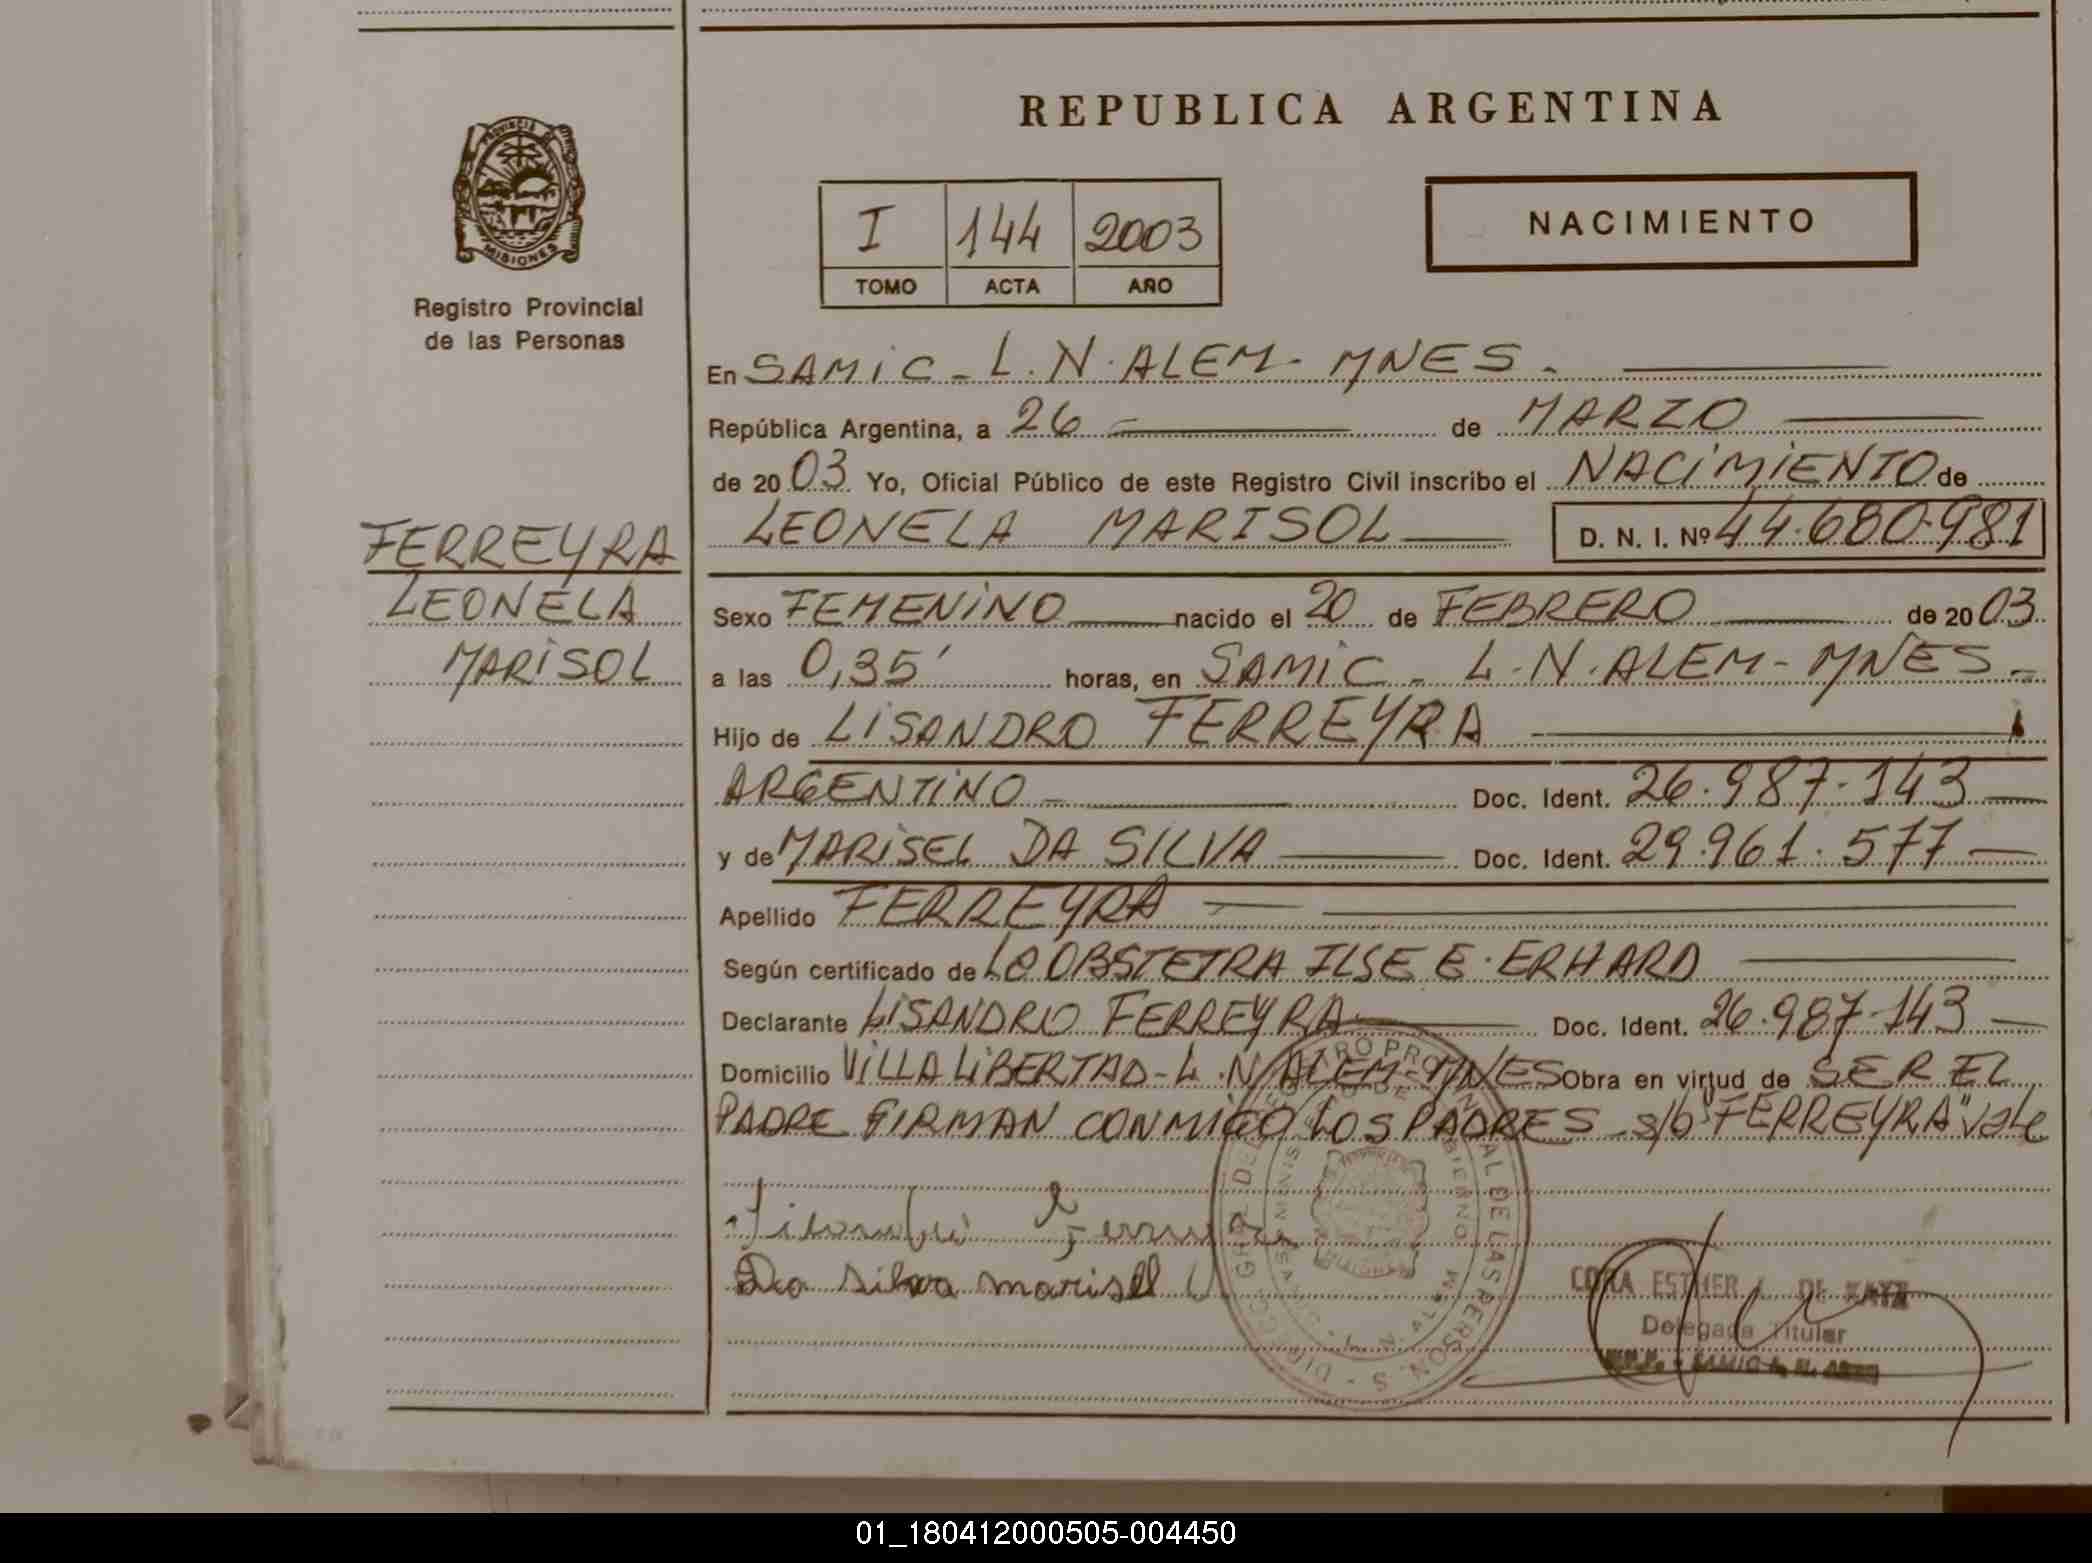 REPUBLICA ARGENTINA
PROVINCIA DE MISIONES
Registro Provincial
de las Personas
I 144 2003
TOMO ACTA AÑO
NACIMIENTO
En SAMIC - L. N. ALEM - MNES.
República Argentina, a 26 de MARZO
de 2003 Yo, Oficial Público de este Registro Civil inscribo el NACIMIENTO de
LEONELA MARISOL D. N. I. Nº 44.680.981
FERREYRA
LEONELA
MARISOL
Sexo FEMENINO nacido el 20 de FEBRERO de 2003
a las 0,35' horas, en SAMIC - L. N. ALEM - MNES -
Hijo de LISANDRO FERREYRA
ARGENTINO Doc. Ident. 26.987.143
y de MARISEL DA SILVA Doc. Ident. 29.961.577
Apellido FERREYRA
Según certificado de OBSTETRA ILSE E. ERHARD
Declarante LISANDRO FERREYRA Doc. Ident. 26.987.143
Domicilio VILLA LIBERTAD - L. N. ALEM - MNES Obra en virtud de SER EL
PADRE FIRMAN CONMIGO LOS PADRES s/b "FERREYRA" vale
Da Silva Marisel
CORA ESTHER DE
Delegada Titular
01_180412000505-004450